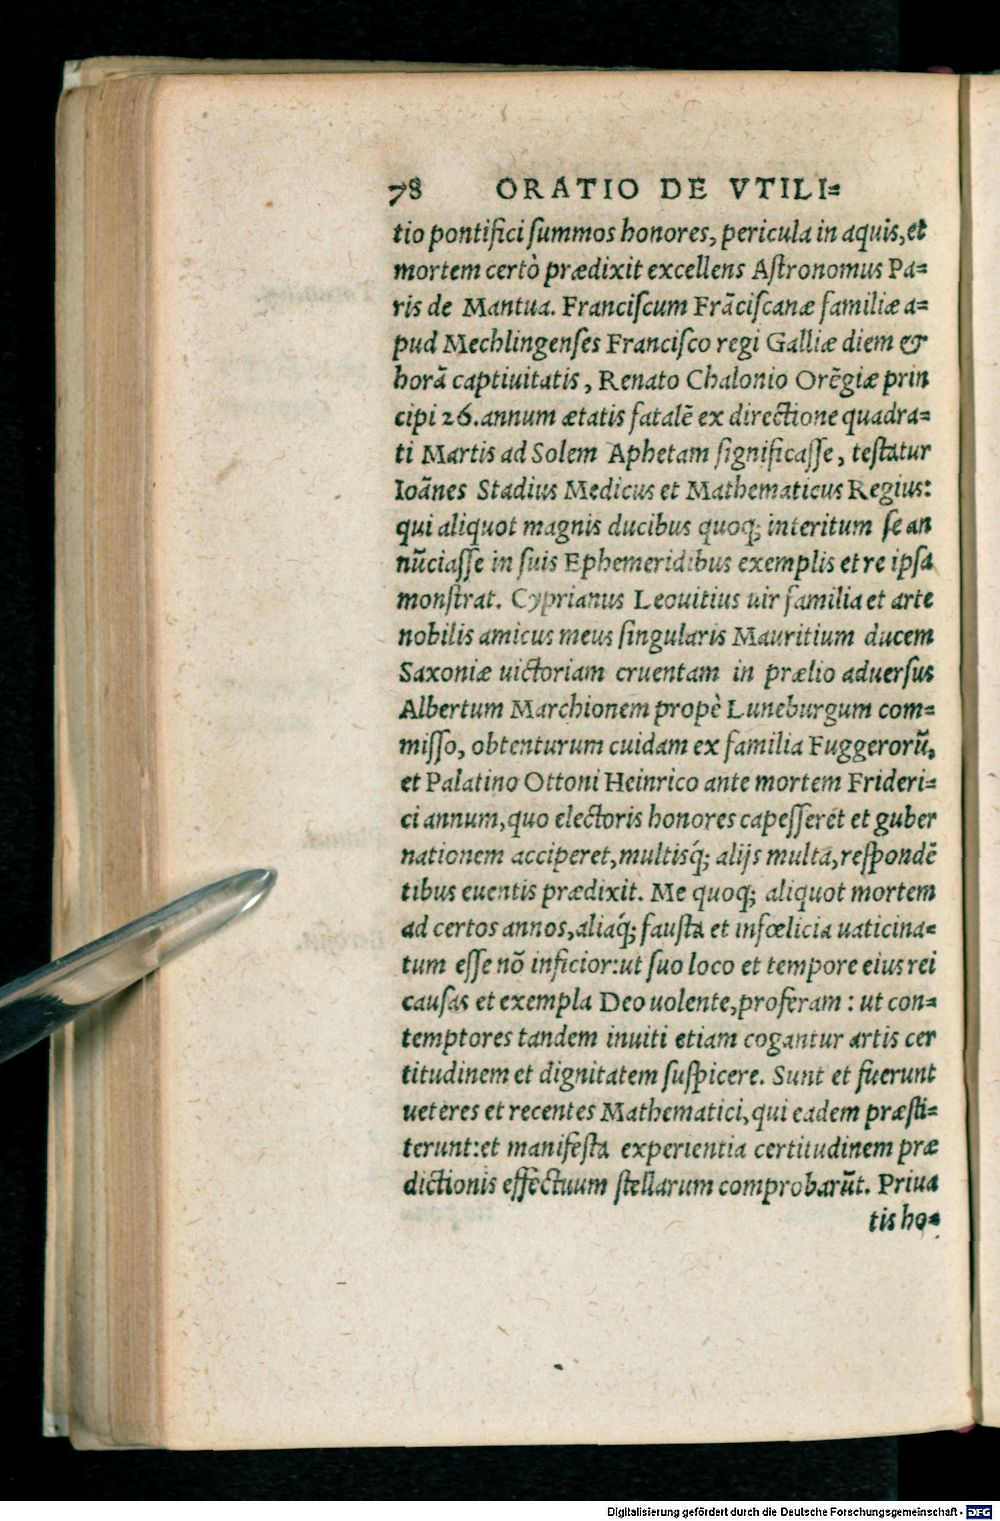 78 ORATIO DE VTILI=
tio pontifici ſummos honores, pericula in aquis, et
mortem certò prædixit excellens Aſtronomus Pa=
ris de Mantua. Franciſcum Frāciſcanæ familiæ a=
pud Mechlingenſes Franciſco regi Galliæ diem &
horā captiuitatis, Renato Chalonio Orēgiæ prin
cipi 26. annum ætatis fatalē ex directione quadra=
ti Martis ad Solem Aphetam ſignificaſſe, teſtatur
Ioānes Stadius Medicus et Mathematicus Regius:
qui aliquot magnis ducibus quoq; interitum ſe an
nūciaſſe in ſuis Ephemeridibus exemplis et re ipſa
monſtrat. Cyprianus Leouitius uir familia et arte
nobilis amicus meus ſingularis Mauritium ducem
Saxoniæ uictoriam cruentam in prælio aduerſus
Albertum Marchionem propè Luneburgum com=
miſſo, obtenturum cuidam ex familia Fuggerorū,
et Palatino Ottoni Heinrico ante mortem Frideri=
ci annum, quo electoris honores capeſſeret et guber
nationem acciperet, multisq́; alijs multa, reſpondē
tibus euentis prædixit. Me quoq; aliquot mortem
ad certos annos, aliaq́; fauſta et infœlicia uaticina=
tum eſſe nō inficior: ut ſuo loco et tempore eius rei
cauſas et exempla Deo uolente, proferam: ut con=
temptores tandem inuiti etiam cogantur artis cer
titudinem et dignitatem ſuſpicere. Sunt et fuerunt
ueteres et recentes Mathematici, qui eadem præſti=
terunt: et manifeſta experientia certitudinem præ
dictionis effectuum ſtellarum comprobarūt. Priua
tis ho=
Digitalisierung gefördert durch die Deutsche Forschungsgemeinschaft - DFG